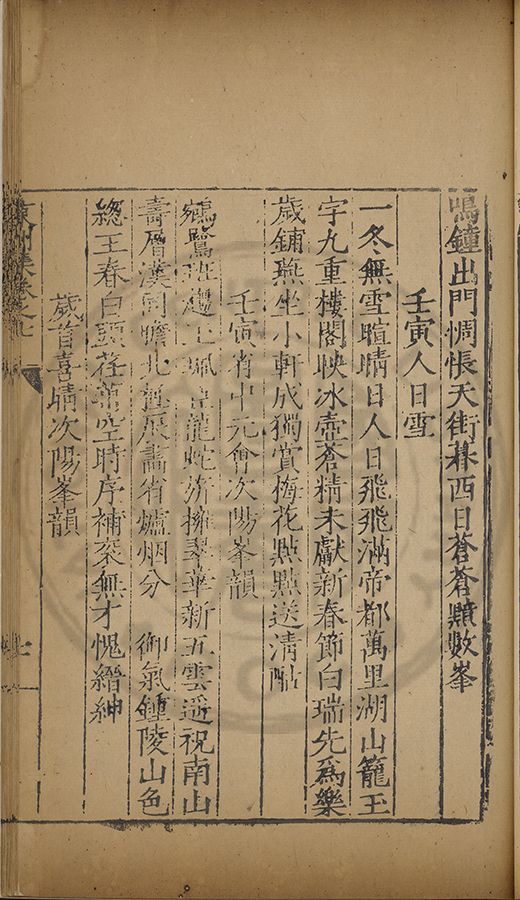 鳴鐘出門惆悵天街暮西日蒼蒼顯數峯
壬寅人日雪
一冬無雪暄晴日人日飛飛滿帝都萬里湖山籠玉
字九重樓閣映冰壺蒼精未獻新春節白瑞先爲樂
歲鋪燕坐小軒成獨賞梅花點點送清酤
壬寅省中元會次陽峯韻
鵷鷺班趨上珮 龍蛇旂擁翠華新五雲遥祝南山
壽層漢同瞻北 展畵省爐烟分 御氣鍾陵山色
總王春白頭荏苒空時序補衮無才愧縉紳
歲首喜晴次陽峯韻
集卷之七
七